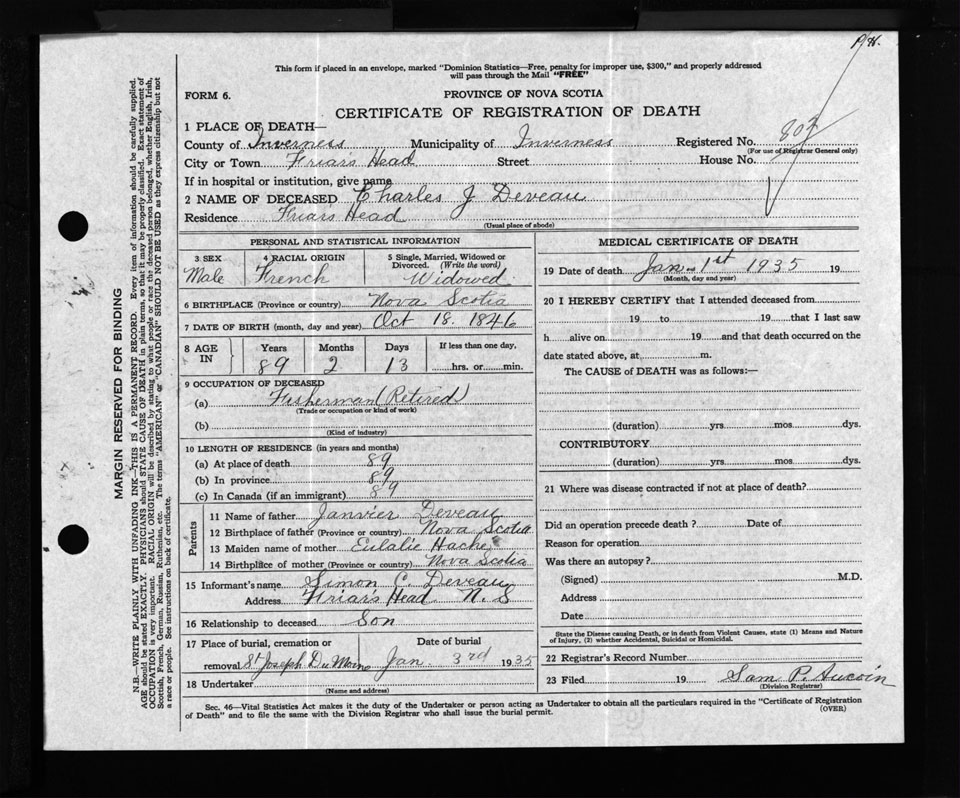 This form if placed in an envelope, marked "Dominion Statistics—Free, penalty for improper use, $300," and properly addressed
will pass through the Mail "FREE"
FORM 6.
PROVINCE OF NOVA SCOTIA
CERTIFICATE OF REGISTRATION OF DEATH
1 PLACE OF DEATH—
County of Inverness Municipality of Inverness Registered No.
(For use of Registrar General only)
City or Town Friars Head Street House No.
If in hospital or institution, give name
2 NAME OF DECEASED Charles J Deveau
Residence Friars Head
(Usual place of abode)
PERSONAL AND STATISTICAL INFORMATION
3 SEX 4 RACIAL ORIGIN 5 Single, Married, Widowed or
Divorced. (Write the word)
Male French Widowed
6 BIRTHPLACE (Province or country) Nova Scotia
7 DATE OF BIRTH (month, day and year) Oct 18. 1846
8 AGE IN Years Months Days If less than one day,
89 2 13 hrs. or min.
9 OCCUPATION OF DECEASED
(a) Fisherman (Retired)
(Trade or occupation or kind of work)
(b)
(Kind of industry)
10 LENGTH OF RESIDENCE (in years and months)
(a) At place of death 89
(b) In province 89
(c) In Canada (if an immigrant) 89
Parents
11 Name of father Janvier Deveau
12 Birthplace of father (Province or country) Nova Scotia
13 Maiden name of mother Eulalie Hache
14 Birthplace of mother (Province or country) Nova Scotia
15 Informant's name Simon C. Deveau
Address Friars Head N. S
16 Relationship to deceased Son
17 Place of burial, cremation or Date of burial
removal St Joseph Du Moine Jan 3rd 1935
18 Undertaker
(Name and address)
MEDICAL CERTIFICATE OF DEATH
19 Date of death Jan 1st 1935 19
(Month, day and year)
20 I HEREBY CERTIFY that I attended deceased from
19 to 19 that I last saw
h alive on 19 and that death occurred on the
date stated above, at m.
The CAUSE of DEATH was as follows:—
(duration) yrs. mos. dys.
CONTRIBUTORY
(duration) yrs. mos. dys.
21 Where was disease contracted if not at place of death?
Did an operation precede death ? Date of
Reason for operation
Was there an autopsy?
(Signed) M.D.
Address
Date
State the Disease causing Death, or in death from Violent Causes, state (1) Means and Nature
of Injury, (2) whether Accidental, Suicidal or Homicidal.
22 Registrar's Record Number
23 Filed 19 Sam P. Aucoin
(Division Registrar)
Sec. 46—Vital Statistics Act makes it the duty of the Undertaker or person acting as Undertaker to obtain all the particulars required in the "Certificate of Registration
of Death" and to file the same with the Division Registrar who shall issue the burial permit.
(OVER)
MARGIN RESERVED FOR BINDING
N.B.—WRITE PLAINLY WITH UNFADING INK—THIS IS A PERMANENT RECORD. Every item of information should be carefully supplied.
AGE should be stated EXACTLY. PHYSICIANS should STATE CAUSE OF DEATH in plain terms, so that it may be properly classified. Exact statement of
OCCUPATION is very important. RACIAL ORIGIN will be described by stating to what people or race the deceased person belonged, whether English, Irish,
Scottish, French, German, Russian, Ruthenian, etc. The terms "AMERICAN" or "CANADIAN" SHOULD NOT BE USED as they express citizenship but not
a race or people. See instructions on back of certificate.